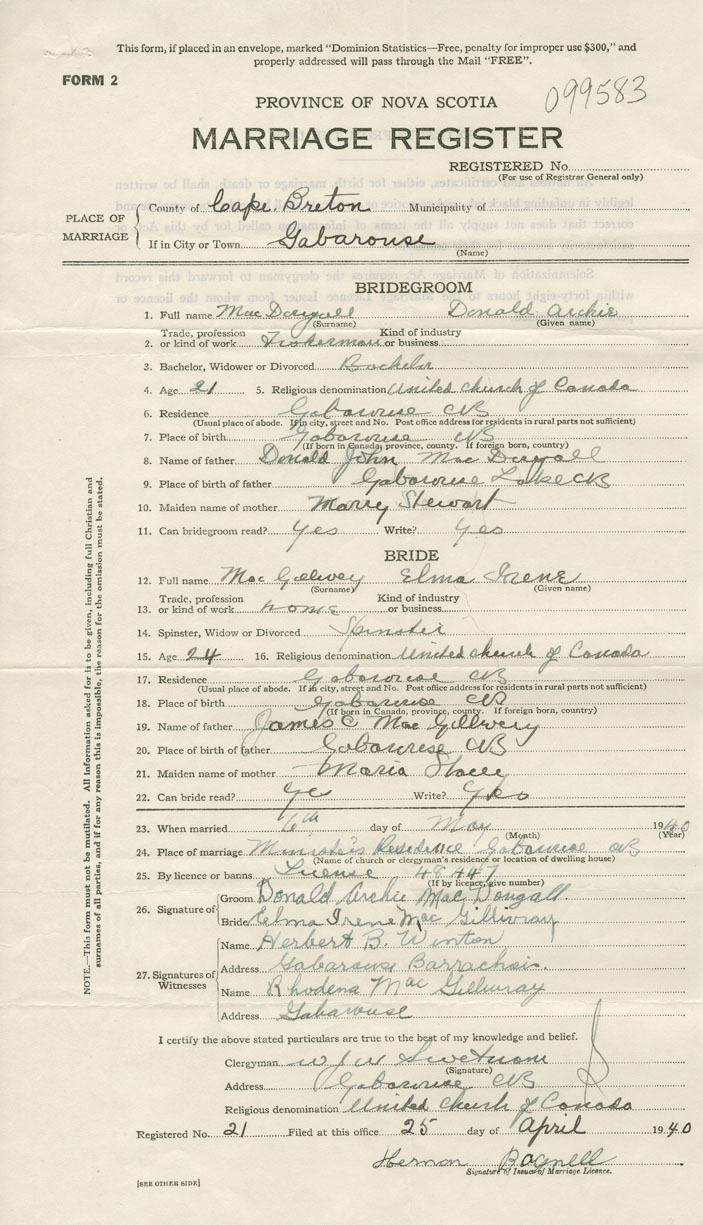 This form, if placed in an envelope, marked "Dominion Statistics—Free, penalty for improper use $300," and
properly addressed will pass through the Mail "FREE".
FORM 2
099583
PROVINCE OF NOVA SCOTIA
MARRIAGE REGISTER
REGISTERED No.
(For use of Registrar General only)
PLACE OF MARRIAGE
County of Cape Breton Municipality of
If in City or Town Gabarouse
(Name)
BRIDEGROOM
1. Full name MacDougall Donald Archie
(Surname) (Given name)
Trade, profession Kind of industry
2. or kind of work Fisherman or business
3. Bachelor, Widower or Divorced Bachelor
4. Age 21 5. Religious denomination United Church of Canada
6. Residence Gabarouse CB
(Usual place of abode. If in city, street and No. Post office address for residents in rural parts not sufficient)
7. Place of birth Gabarouse CB
(If born in Canada, province, county. If foreign born, country)
8. Name of father Donald John MacDougall
9. Place of birth of father Gabarouse Lake CB
10. Maiden name of mother Marry Stewart
11. Can bridegroom read? Yes Write? Yes
BRIDE
12. Full name Mac Gillivey Elma Irene
(Surname) (Given name)
Trade, profession Kind of industry
13. or kind of work home or business
14. Spinster, Widow or Divorced Spinster
15. Age 24 16. Religious denomination United Church of Canada
17. Residence Gabarouse CB
(Usual place of abode. If in city, street and No. Post office address for residents in rural parts not sufficient)
18. Place of birth Gabarouse CB
(If born in Canada, province, county. If foreign born, country)
19. Name of father James C Mac Gillivery
20. Place of birth of father Gabarouse CB
21. Maiden name of mother Maria Stacey
22. Can bride read? Write?
23. When married 6th day of May 1940
(Month) (Year)
24. Place of marriage Minister's Residence Gabarouse CB
(Name of church or clergyman's residence or location of dwelling house)
25. By licence or banns License 49447
(If by licence, give number)
26. Signature of
Groom Donald Archie MacDougall.
Bride Elma Irene Mac Gillivray
27. Signatures of Witnesses
Name Herbert B. Winton
Address Gabarouse Barrachois.
Name Rhodena Mac Gillivray
Address Gabarouse
I certify the above stated particulars are true to the best of my knowledge and belief.
Clergyman W J W Swetnam
(Signature)
Address Gabarouse CB
Religious denomination United Church of Canada
Registered No. 21 Filed at this office 25 day of April 1940
Bagnell
Signature of Issuer of Marriage Licence.
[SEE OTHER SIDE]
NOTE.—This form must not be mutilated. All information asked for is to be given, including full Christian and
surnames of all parties, and if for any reason this is impossible, the reason for the omission must be stated.